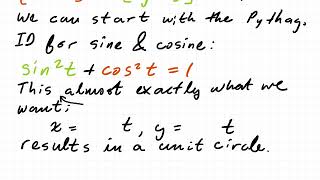 we can start with the Pythag.
ID for sine & cosine:
sin²t + cos²t = 1
This almost exactly what we
want:
x = t, y = t
results in a unit circle.